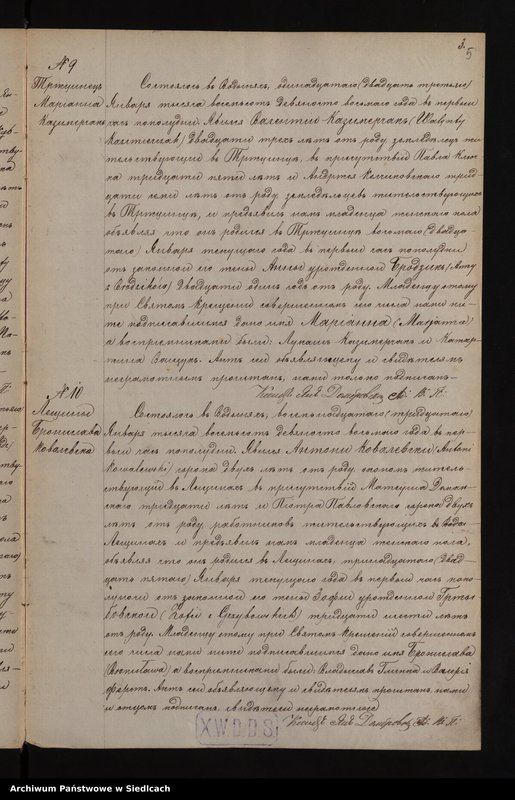 5
№ 9
Тржцинецъ
Марiанна
Казимерчакъ
Состоялось въ Водыняхъ, одинадцатаго (двадцать третьяго)
Января тысяча восемьсотъ девяносто восьмаго года въ первый
часъ пополудни. Явился Валентiй Казимерчакъ (Walenty
Kazimierczak) двадцати трехъ лѣтъ отъ роду, земледѣлецъ жи-
тельствующiй въ Тржцинцѣ, въ присутствiи Павла
тридцати пяти лѣтъ и Андрея трид-
цати лѣтъ отъ роду, земледѣльцевъ жительствующихъ
въ Тржцинцѣ, и предъявилъ намъ младенца женскаго пола
объявляя что онъ родился въ Тржцинцѣ восьмаго (двадца-
таго) Января текущаго года въ первый часъ пополудни
отъ законной его жены Анны урожденной Бродзикъ (Anny
z Brodzików) двадцати одинъ годъ отъ роду. Младенцу этому
при Святомъ Крещенiи совершенномъ сего числа нами ни-
же подписавшимся дано имя Марiанна (Maryanna)
а воспрiемниками были: Лукашъ Казимерчакъ и Катар-
жина. Актъ сей объявляющему и свидѣтелямъ
неграмотнымъ прочитанъ, нами только подписанъ
№ 10
Бронислава
Ковалевска
Состоялось въ Водыняхъ, восемнадцатаго (тридцатаго)
Января тысяча восемьсотъ девяносто восьмаго года въ пер-
вый часъ пополудни. Явился Антонiй Ковалевскiй (Antoni
Kowalewski) сорока двухъ лѣтъ отъ роду, житель-
ствующiй въ въ присутствiи Матеуша
тридцати лѣтъ и Петра Павловскаго сорока двухъ
лѣтъ отъ роду, работниковъ жительствующихъ въ
и предъявилъ намъ младенца женскаго пола,
объявляя что онъ родился въ тринадцатаго (двад-
цать пятаго) Января текущаго года въ первый часъ попо-
лудни отъ законной его жены Зофiи урожденной Гржы-
бовской (Zofii z Grzybowskich) тридцати шести лѣтъ
отъ роду. Младенцу этому при Святомъ Крещенiи совершенномъ
сего числа нами ниже подписавшимся дано имя Бронислава
(Bronisława) а воспрiемниками были: Владиславъ Глинка и Валерiя
Актъ сей объявляющему и свидѣтелямъ прочитанъ, нами
и отцемъ подписанъ, свидѣтели неграмотные
X.W.D.D.S
Archiwum Państwowe w Siedlcach